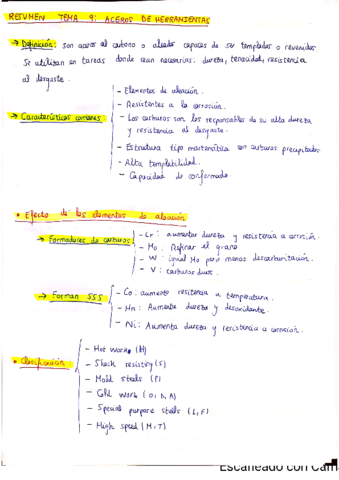 RESUMEN TEMA 9: ACEROS DE HERRAMIENTAS
→ Definición: son aceros al carbono o aleados capaces de ser templados o revenidos
Se utilizan en tareas donde sean necesarias: dureza, tenacidad, resistencia
al desgaste.
→ Características comunes:
- Elementos de aleación.
- Resistentes a la corrosión.
- Los carburos son los responsables de su alta dureza
y resistencia al desgaste.
- Estructura tipo martensítica con carburos precipitados
- Alta templabilidad.
- Capacidad de conformado
• Efecto de los elementos de aleación
→ Formadores de carburos
- Cr: aumentar dureza y resistencia a corrosión.
- Mo: Refinar el grano
- W: igual Mo pero menos descarburización.
- V: carburos duros.
→ Forman SSS
- Co: aumento resistencia a temperatura.
- Mn: Aumenta dureza y desoxidante.
- Ni: Aumenta dureza y resistencia a corrosión.
• Clasificación
- Hot work (H)
- Shock resisting (S)
- Mold steels (P)
- Cold work (O, D, A)
- Special purpose steels (L, F)
- High speed (M, T)
Escaneado con Cam